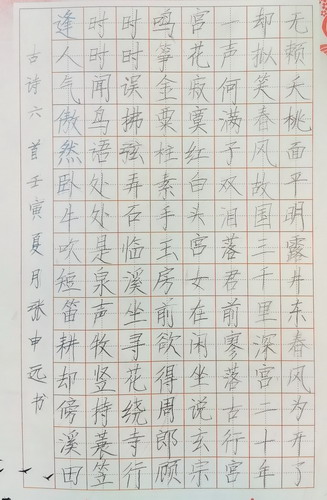 无赖夭桃面平明露井东春风为开了
却拟笑春风故国三千里深宫二十年
一声何满子双泪落君前寥落古行宫
宫花寂寞红白头宫女在闲坐说玄宗
鸣筝金粟柱素手玉房前欲得周郎顾
时时误拂弦弄石临溪坐寻花绕寺行
时时闻鸟语处处是泉声牧竖持蓑笠
逢人气傲然卧牛吹短笛耕却傍溪田
古诗六首壬寅夏月张申远书